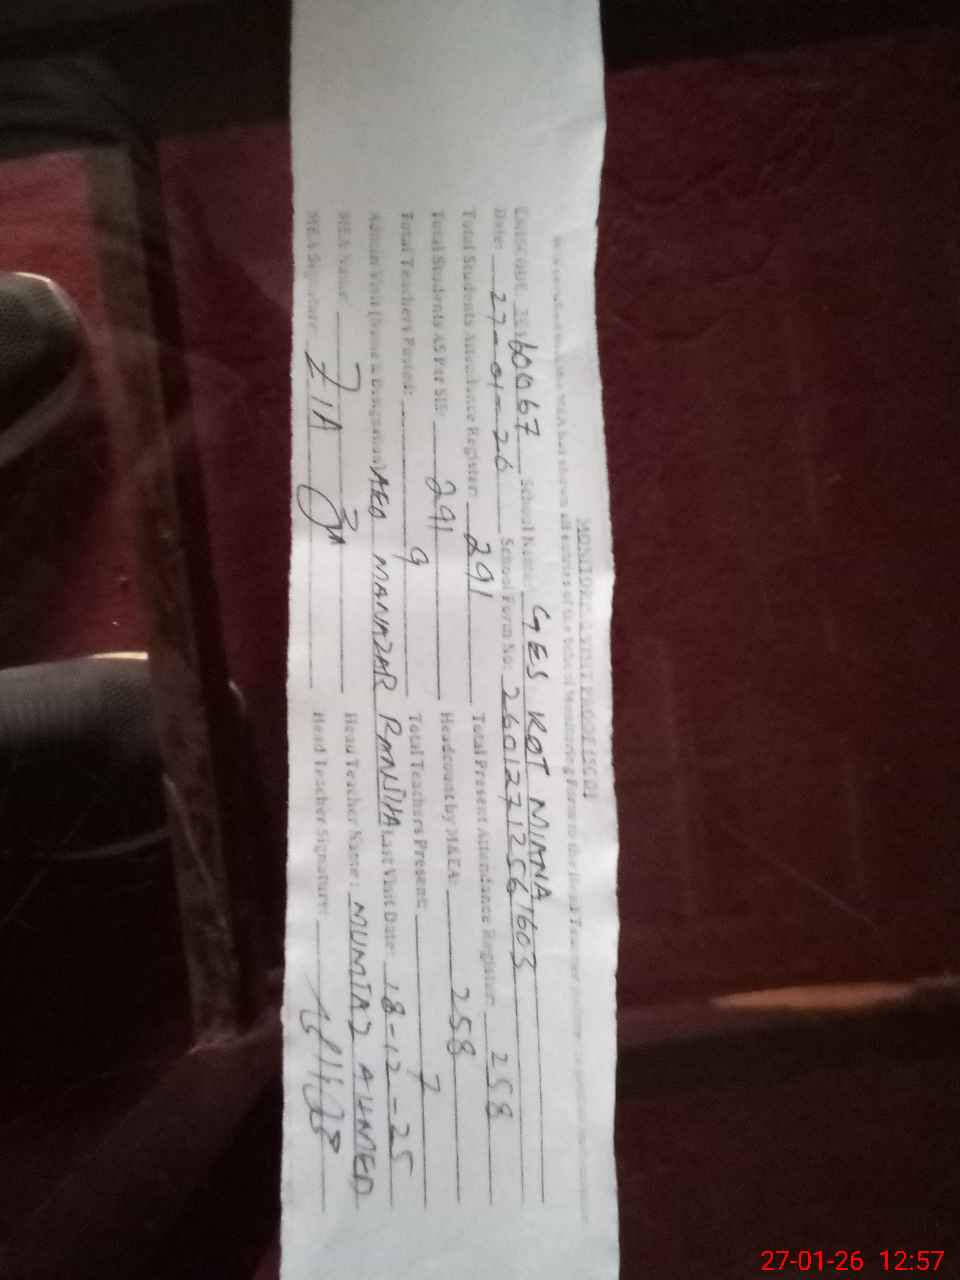 MONITORING VISIT PROOF (SCH)
School Monitoring Form to the Head Teacher
60067 School Name: GES KOT MIANA
Date: 27-01-26 School Form No: 26012712561603
Total Students Attendance Register: 291 Total Present Attendance Register: 258
Total Students AS Per SIS: 291 Headcount by MEA: 258
Total Teachers Posted: 9 Total Teachers Present: 7
Admin Visit (Name & Designation) AEO MANAZAR RANJHA Last Visit Date: 18-12-25
MEA Name: ZIA Head Teacher Name: MUMTAZ AHMED
MEA Signature: Head Teacher Signature:
27-01-26 12:57